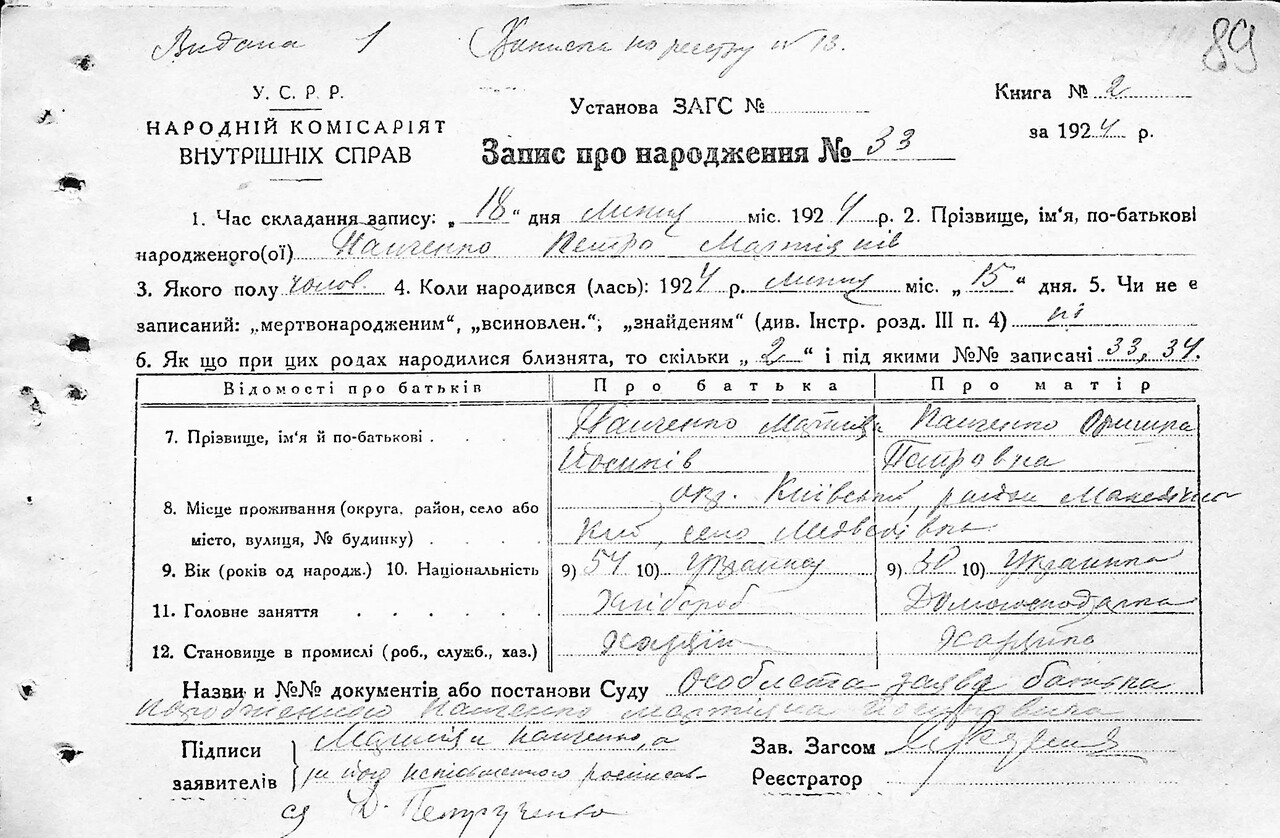 Видана 1 Виписка по реєстру № 13.
89
У. С. Р. Р.
НАРОДНІЙ КОМІСАРІЯТ
ВНУТРІШНІХ СПРАВ
Установа ЗАГС №
Книга № 2
за 1924 р.
Запис про народження № 33
1. Час складання запису: „18“ дня липня міс. 1924 р. 2. Прізвище, ім‘я, по-батькові
народженого(ої) Панченко Петро Мартинів
3. Якого полу чолов. 4. Коли народився (лась): 1924 р. липня міс. „15“ дня. 5. Чи не є
записаний: „мертвонародженим“, „всиновлен.“; „знайденям“ (див. Інстр. розд. III п. 4) ні
6. Як що при цих родах народилися близнята, то скільки „2“ і під якими №№ записані 33, 34.
Відомості про батьків Про батька Про матір
7. Прізвище, ім‘я й по-батькові Панченко Панченко Оришка
Йосипів Петровна
окр. Київської, район
8. Місце проживання (округа, район, село або
місто, вулиця, № будинку) село Медведівка
9. Вік (років од народж.) 10. Національність 9) 54 10) Українец 9) 30 10) Украинка
11. Головне заняття Хлібороб Домогосподарка
12. Становище в промислі (роб., служб., хаз.) Хазяїн Хазяйка
Назви и №№ документів або постанови Суду Особиста заява батька
народженного Панченко Йосиповича
Підписи
заявителів
Панченко, а
за його неписьменного росписав-
ся Д. Петрученко
Зав. Загсом
Реєстратор